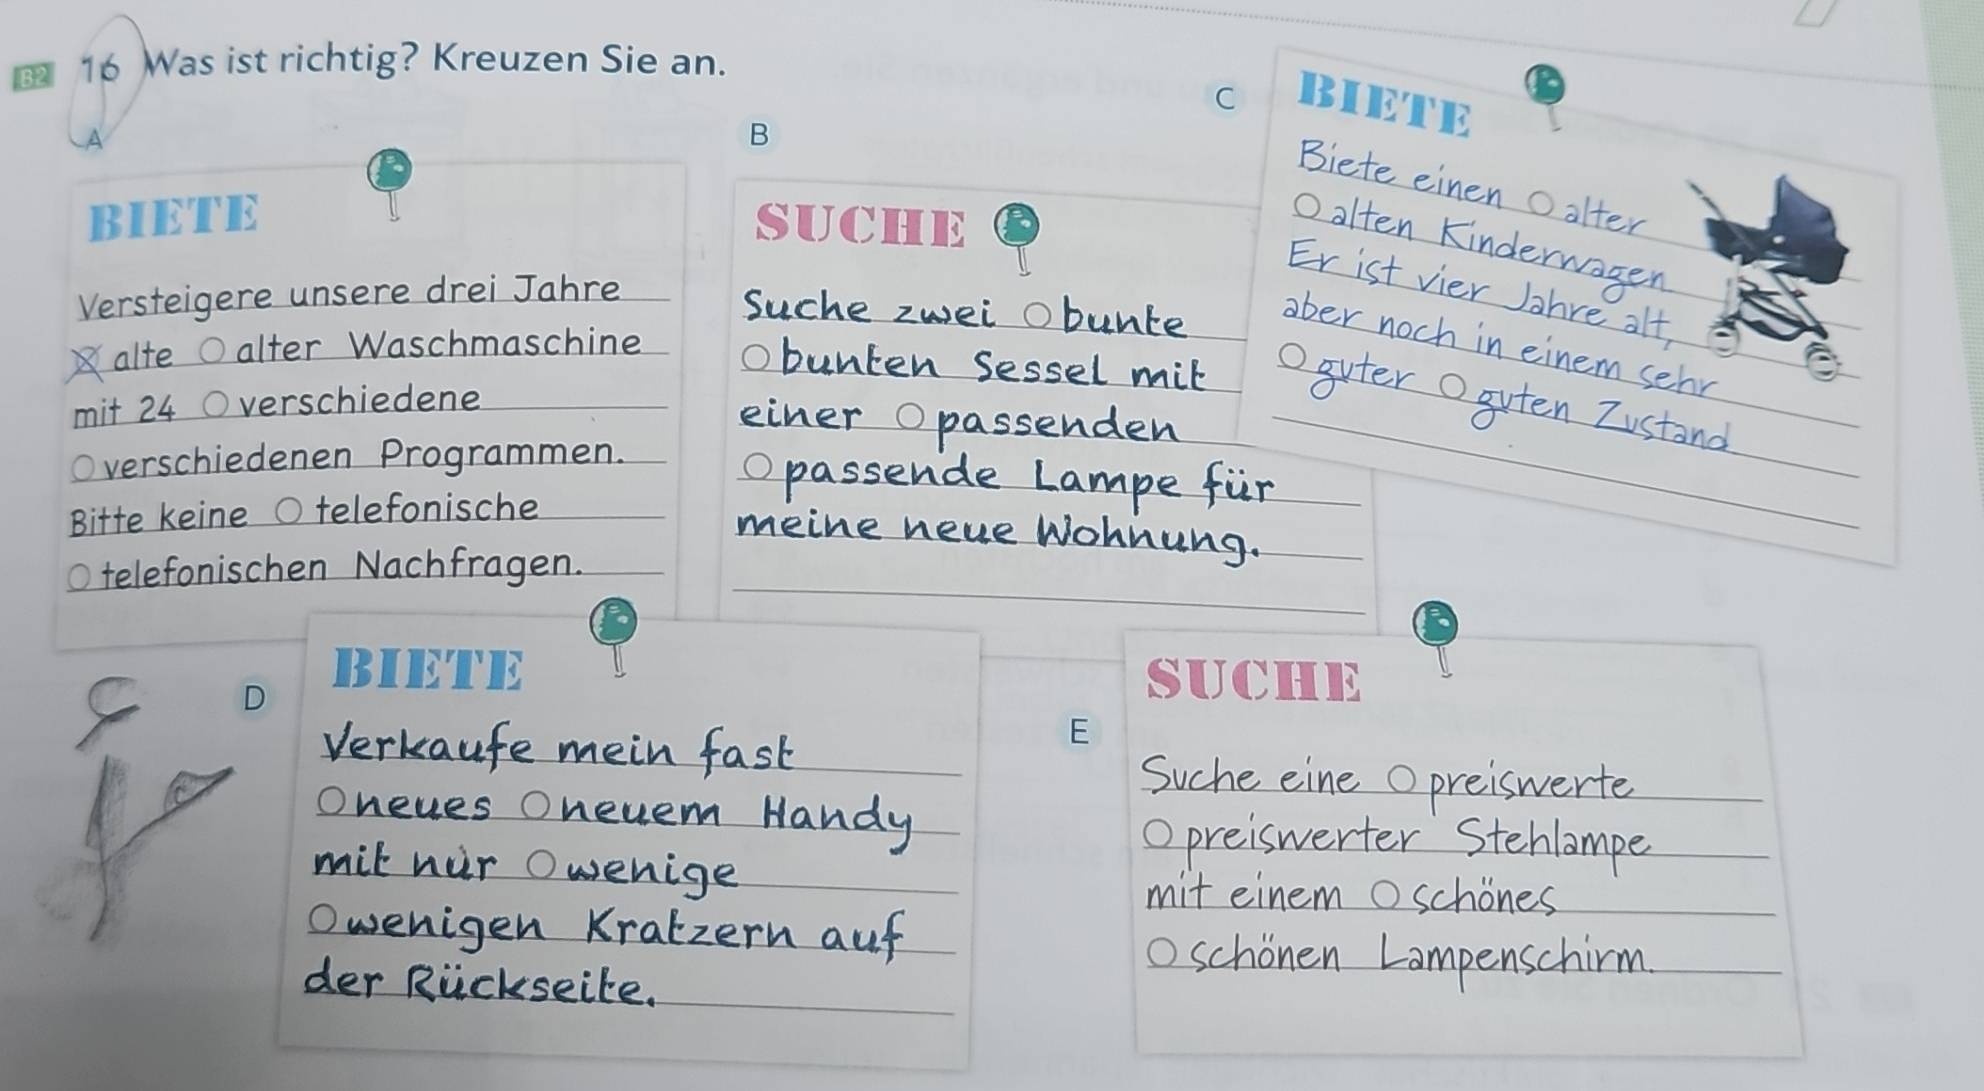 B2 16 Was ist richtig? Kreuzen Sie an.
A
BIETE
Versteigere unsere drei Jahre
alte alter Waschmaschine
mit 24 verschiedene
verschiedenen Programmen.
Bitte keine telefonische
telefonischen Nachfragen.
B
SUCHE
Suche zwei bunte
bunten Sessel mit
einer passenden
passende Lampe für
meine neue Wohnung.
C
BIETE
Biete einen alter
alten Kinderwagen
Er ist vier Jahre alt,
aber noch in einem sehr
guter guten Zustand
D
BIETE
Verkaufe mein fast
neues neuem Handy
mit nur wenige
wenigen Kratzern auf
der Rückseite.
E
SUCHE
Suche eine preiswerte
preiswerter Stehlampe
mit einem schönes
schönen Lampenschirm.